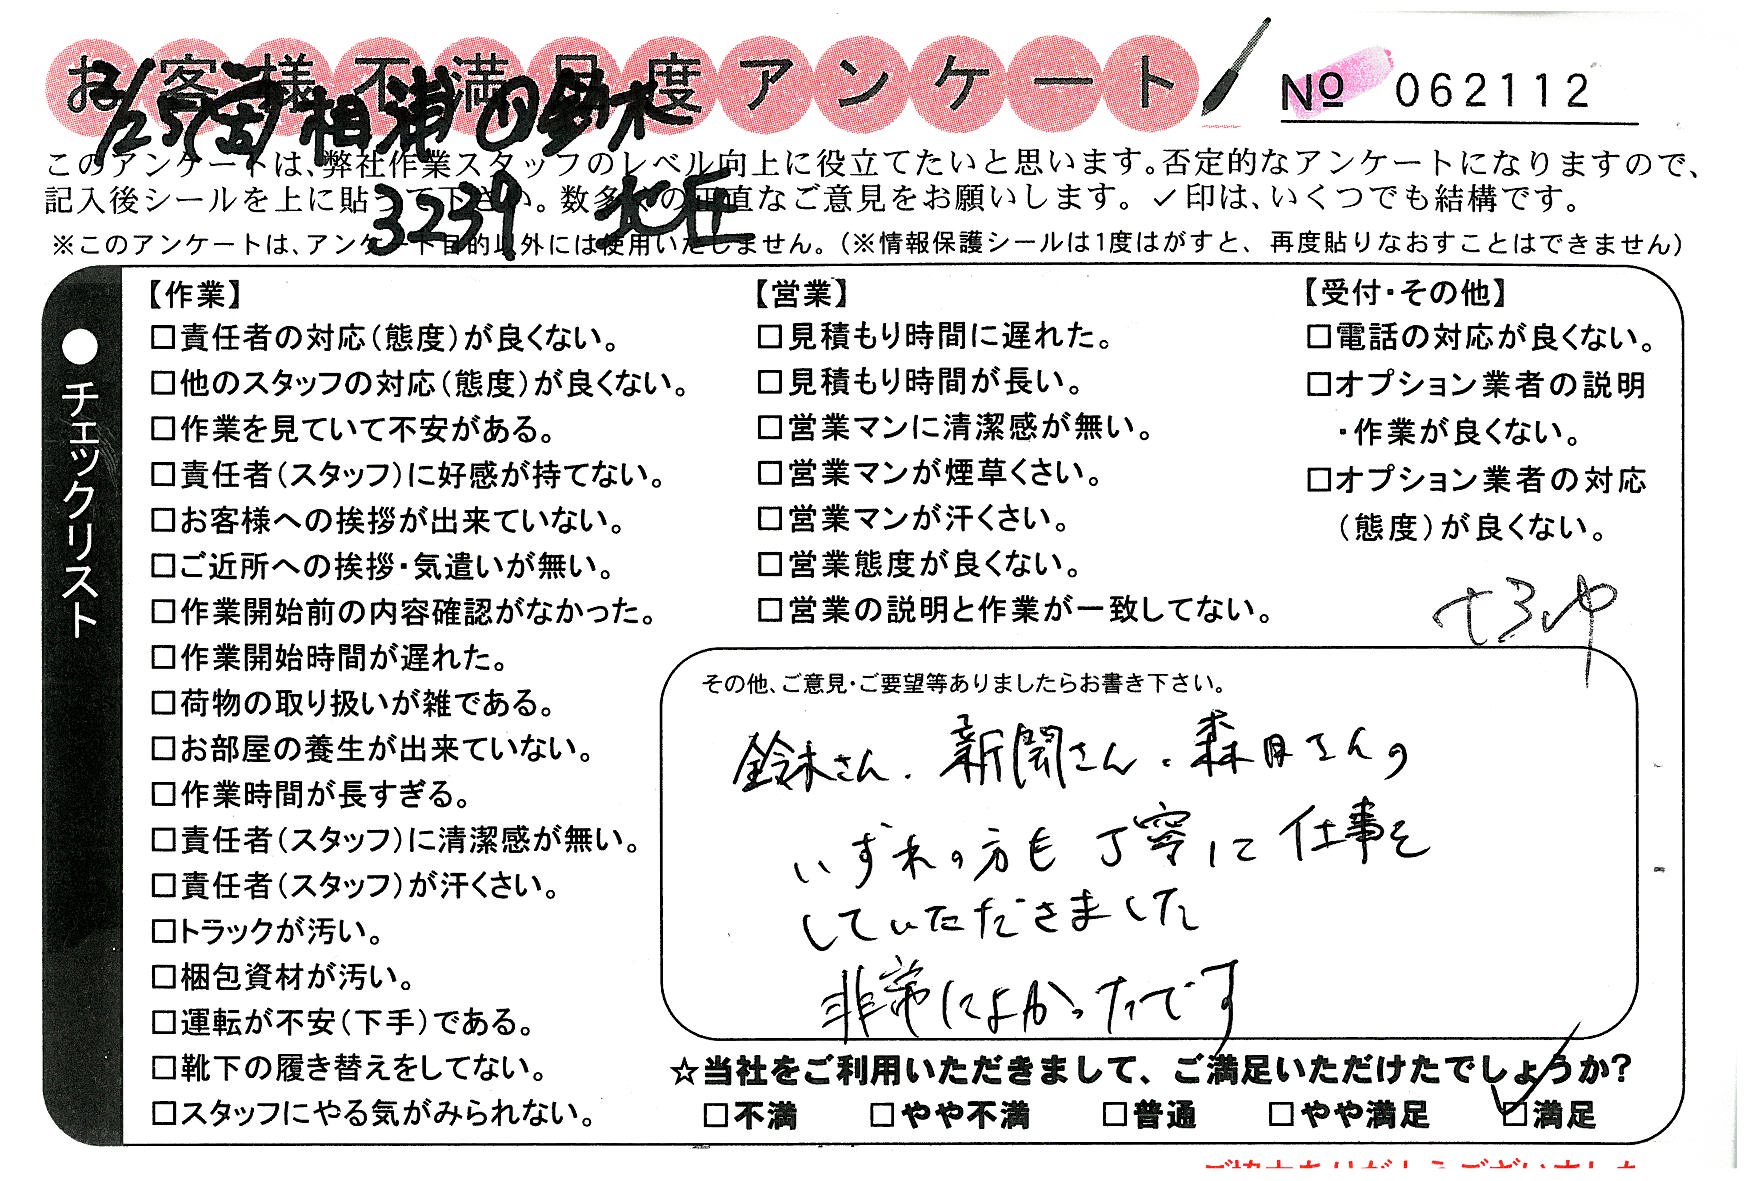 お客様不満足度アンケート
No 062112
3239
このアンケートは、弊社作業スタッフのレベル向上に役立てたいと思います。否定的なアンケートになりますので、
記入後シールを上に貼って下さい。数多くの正直なご意見をお願いします。✓印は、いくつでも結構です。
※このアンケートは、アンケート目的以外には使用いたしません。(※情報保護シールは1度はがすと、再度貼りなおすことはできません)
●チェックリスト
【作業】
□責任者の対応(態度)が良くない。
□他のスタッフの対応(態度)が良くない。
□作業を見ていて不安がある。
□責任者(スタッフ)に好感が持てない。
□お客様への挨拶が出来ていない。
□ご近所への挨拶・気遣いが無い。
□作業開始前の内容確認がなかった。
□作業開始時間が遅れた。
□荷物の取り扱いが雑である。
□お部屋の養生が出来ていない。
□作業時間が長すぎる。
□責任者(スタッフ)に清潔感が無い。
□責任者(スタッフ)が汗くさい。
□トラックが汚い。
□梱包資材が汚い。
□運転が不安(下手)である。
□靴下の履き替えをしてない。
□スタッフにやる気がみられない。
【営業】
□見積もり時間に遅れた。
□見積もり時間が長い。
□営業マンに清潔感が無い。
□営業マンが煙草くさい。
□営業マンが汗くさい。
□営業態度が良くない。
□営業の説明と作業が一致してない。
【受付・その他】
□電話の対応が良くない。
□オプション業者の説明
・作業が良くない。
□オプション業者の対応
(態度)が良くない。
その他、ご意見・ご要望等ありましたらお書き下さい。
鈴木さん、新聞さん、森田さんの
いずれの方も丁寧に仕事を
していただきました
非常によかったです
☆当社をご利用いただきまして、ご満足いただけたでしょうか?
□不満 □やや不満 □普通 □やや満足 ☑満足
ご協力ありがとうございました